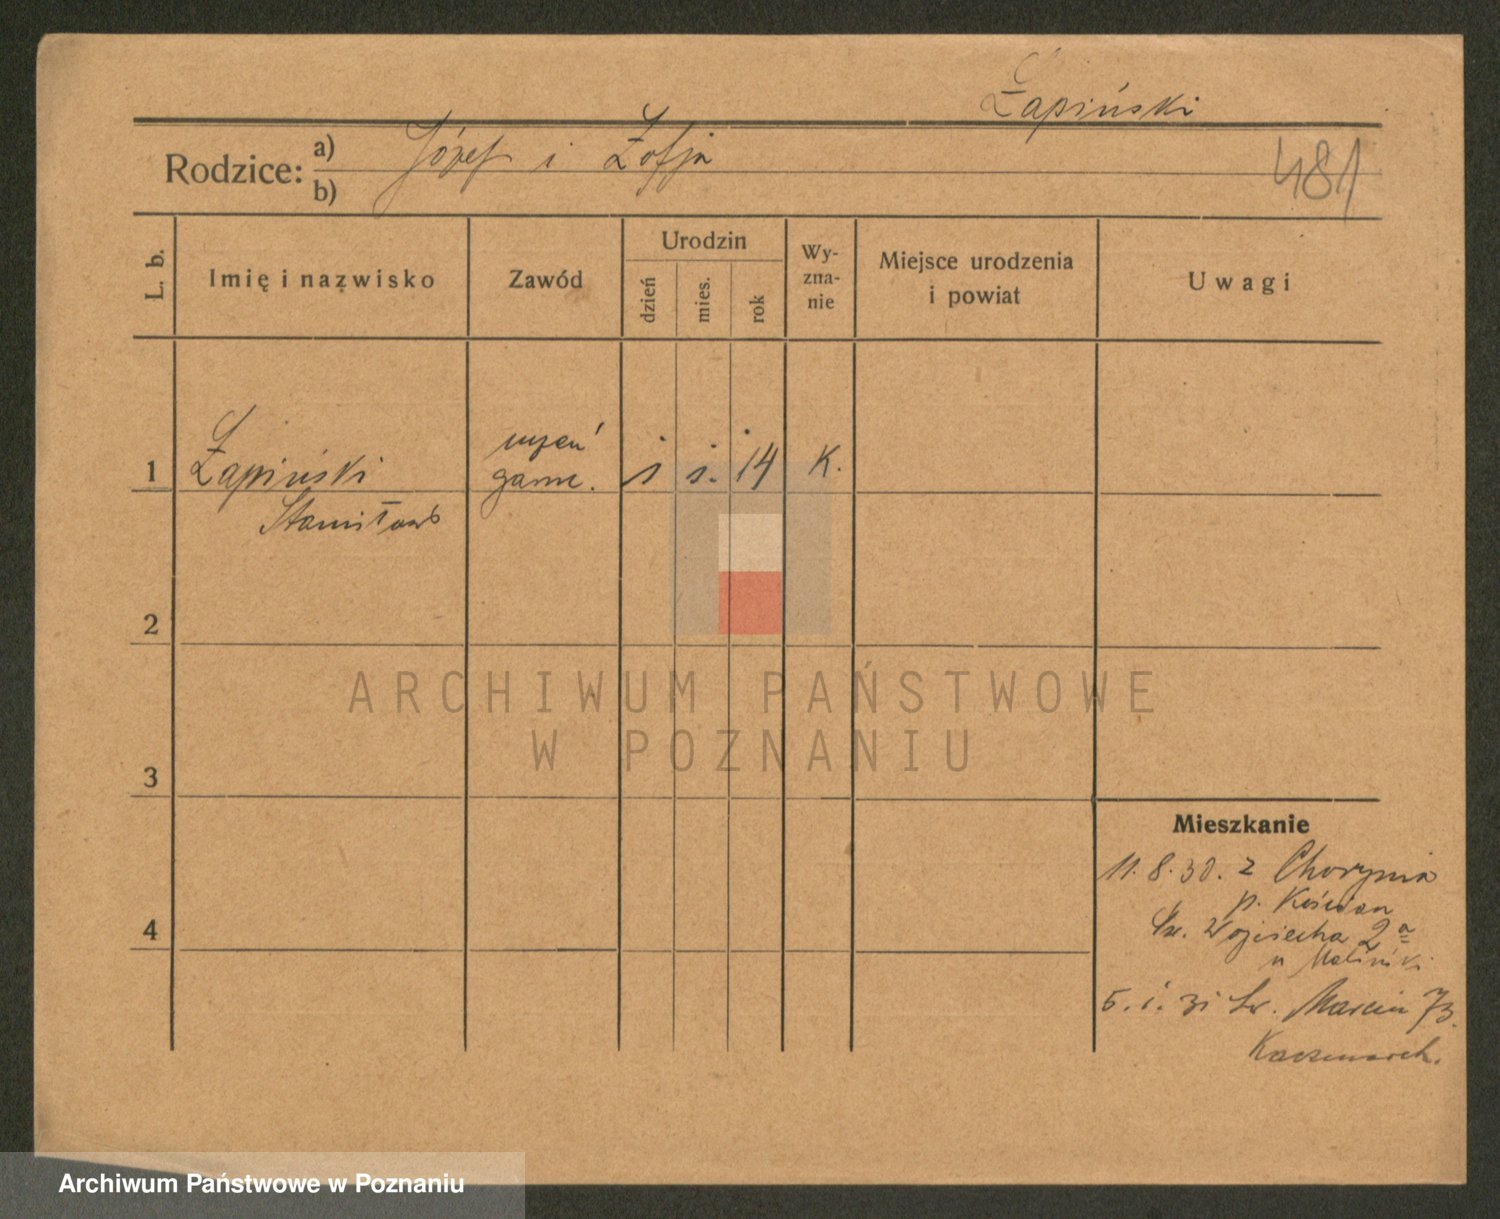 Łapiński
Rodzice: a) Józef i Zofja
b)
481
L. b.
Imię i nazwisko
Zawód
Urodzin
dzień
mies.
rok
Wy-
zna-
nie
Miejsce urodzenia
i powiat
Uwagi
1
Łapiński
Stanisław
uczeń
garnc.
1
1.
14
K.
2
3
4
ARCHIWUM PAŃSTWOWE
W POZNANIU
Mieszkanie
11. 8. 30. z Chorynia
p. Kościan
Św. Wojciecha 2a
u Maliński
5. 1. 31 Św. Marcin 73.
Kaczmarek.
Archiwum Państwowe w Poznaniu